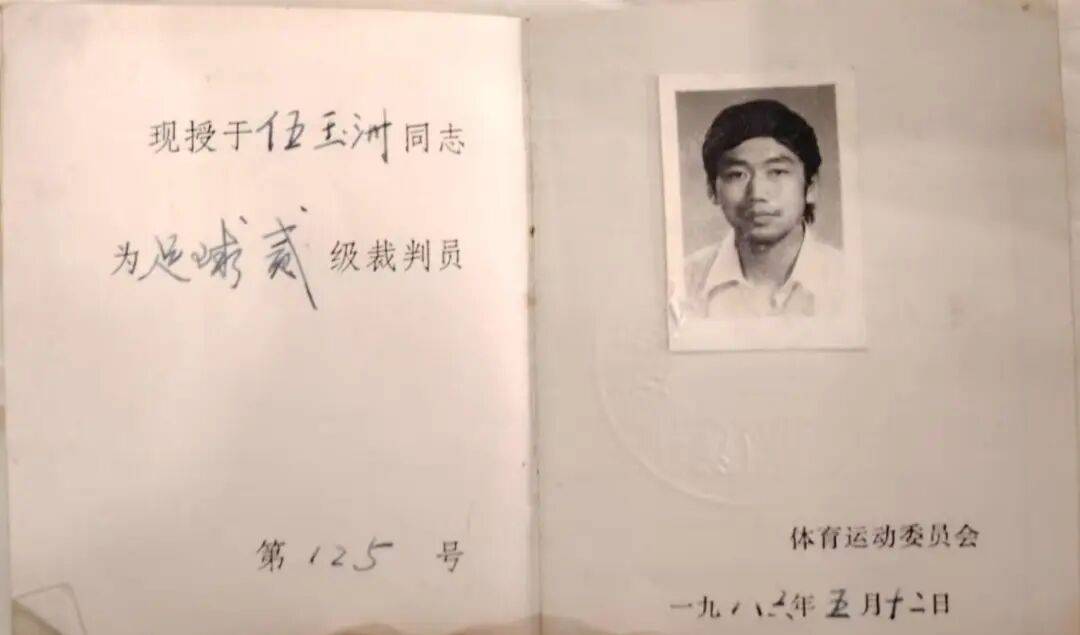 现授于伍玉洲同志
为足球贰级裁判员
第125号
体育运动委员会
一九八三年五月十二日